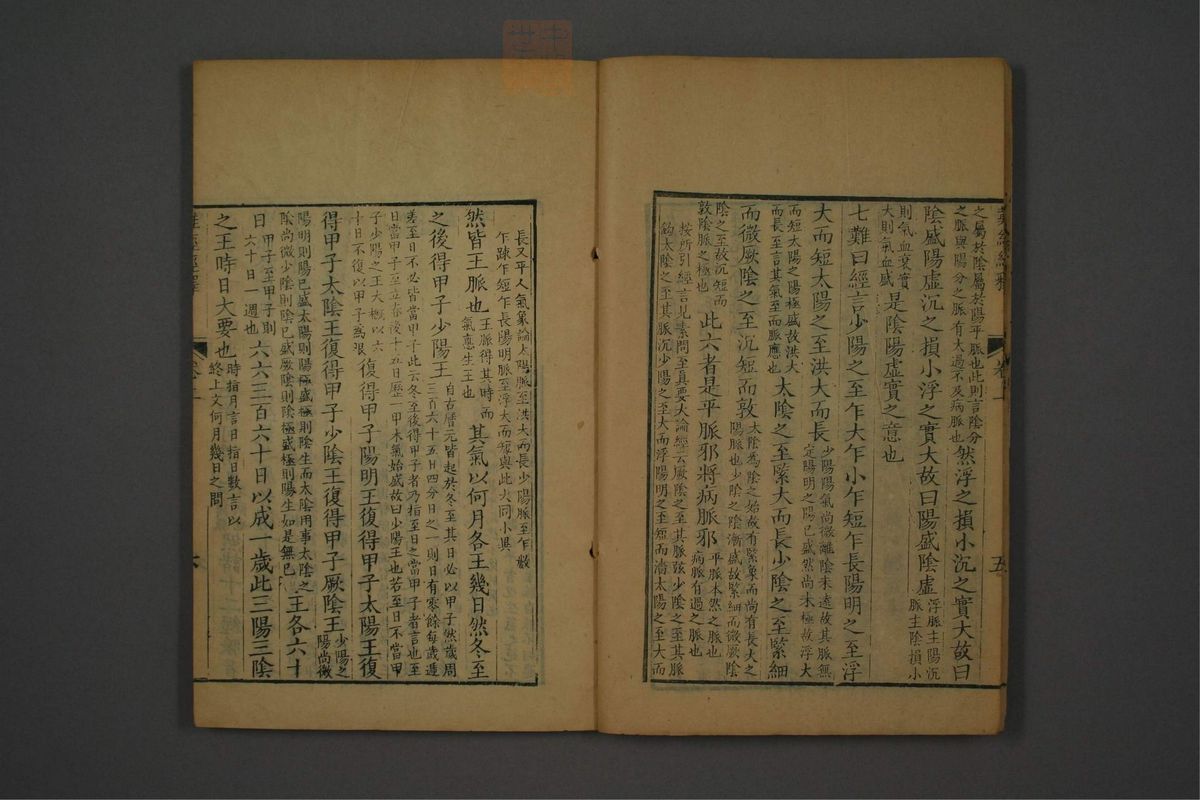 之屬於陰屬於陽平脈也此則言陰分
之脈與陽分之脈有大過不及病脈也
然浮之損小沉之實大故曰
陰盛陽虛沉之損小浮之實大故曰陽盛陰虛
浮脈主陽沉
脈主陰損小
則氣血衰實
大則氣血盛
是陰陽虛實之意也
七難曰經言少陽之至乍大乍小乍短乍長陽明之至浮
大而短太陽之至洪大而長
少陽陽氣尚微離陰未遠故其脈無
定陽明之陽已盛然尚未極故浮大
而短太陽之陽極盛故洪大
而長至言其氣至而脈應也
太陰之至緊大而長少陰之至緊細
而微厥陰之至沉短而敦
太陰為陰之始故有緊象而尚有長大之
陽脈也少陰之陰漸盛故緊細而微厥陰
陰之至故沉短而
敦陰脈之極也
此六者是平脈邪將病脈邪
平脈本然之脈也
病脈有過之脈也
按所引經言見素問至真要大論經云厥陰之至其脈弦少陰之至其脈
鈎太陰之至其脈沉少陽之至大而浮陽明之至短而濇太陽之至大而
長又平人氣象論太陽脈至洪大而長少陽脈至乍數
乍疎乍短乍長陽明脈至浮大而短與此大同小異
然皆王脈也
王脈得其時而
氣應生王也
其氣以何月各王幾日然冬至
之後得甲子少陽王
自古曆元皆起於冬至其日必以甲子然歲周
三百六十五日四分日之一則日有零餘每歲遞
差至日不必皆當甲子此云冬至後得甲子者乃指至日之當甲子者言也至
日當甲子至立春後十五日歷一甲木氣始盛故曰少陽王也若至日不當甲
子少陽之王大概以六
十日不復以甲子為限
復得甲子陽明王復得甲子太陽王復
得甲子太陰王復得甲子少陰王復得甲子厥陰王
少陽之
陽尚微
陽明則陽已盛太陽則陽極盛極則陰生而太陰用事太陰之
陰尚微少陰則陰已盛厥陰則陰極盛極則陽生如是無已
王各六十
日
甲子至甲子則
六十日一週也
六六三百六十日以成一歲此三陽三陰
之王時日大要也
時指月言日指日數言以
終上文何月幾日之問